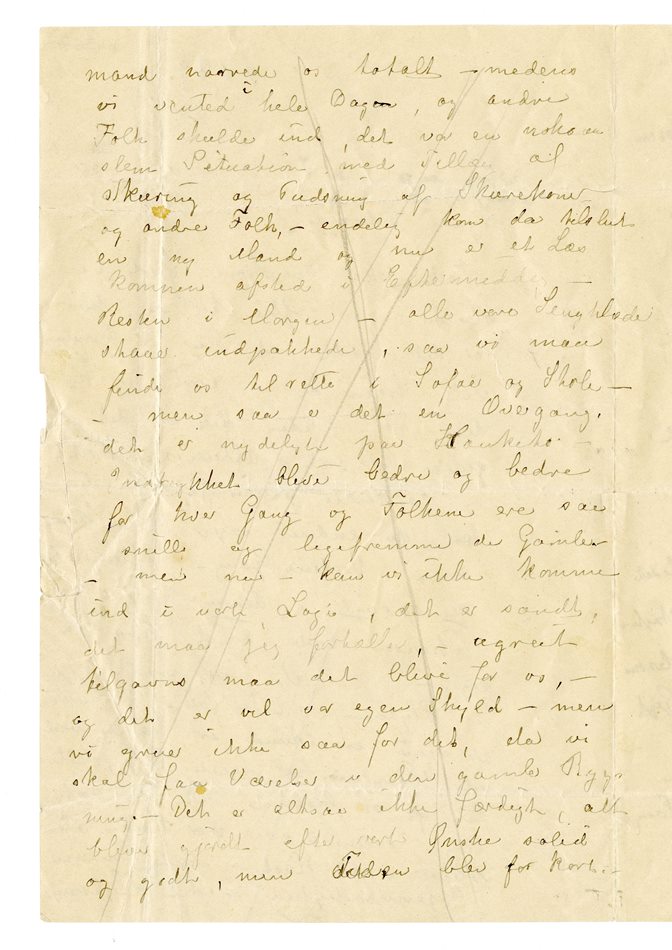 mand narrede os totalt – medens
vi vented i hele Dagen, og andre
Folk skulde ind, det var en noksaa
slem Situation med Tillæg af
Skuring og Pudsning af Skurekone
og andre Folk, – endelig kom da tilslut
en ny Mand og nu er et Læs
kommen afsted i Eftermiddag –
Resten i Morgen – alle vore Sengklæder
staar indpakkede, saa vi maa
finde os tilrette i Sofae og Stole –
– men saa er det en Overgang.
det er nydeligt paa Hauketo –
Indtrykket blive bedre og bedre
for hver Gang og Folkene ere saa
snille og ligefremme de Gamle
– men nu – kan vi ikke komme
ind i vort Logi, det er sandt,
det maa jeg fortælle, – ugreit
tilgavns maa det blive for os, –
og det er vel vor egen Skyld – men
vi gruer ikke saa for det, da vi
skal faa Værelser i den gamle Byg-
ning. – Det er altsaa ikke færdigt, alt
bliver gjordt efter vort Ønske solid
og godt, men Tiden blev for kort. –